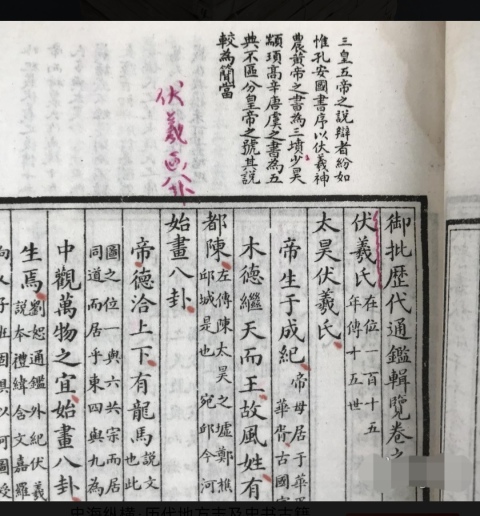 三皇五帝之說辯者紛如
惟孔安國書序以伏羲神
農黃帝之書為三墳少昊
顓頊高辛唐虞之書為五
典不區分皇帝之號其說
較為簡當
伏羲画八卦
御批歷代通鑑輯覽卷之
伏羲氏在位一百十五
年傳十五世
太昊伏羲氏
帝生于成紀帝母居于華
華胥古國
木德繼天而王故風姓有
都陳左傳陳太昊之墟鄭樵
邱城是也宛邱今河
始畫八卦
帝德洽上下有龍馬說文
也此
圖之位一與六共宗而居
同道而居乎東四與九為
中觀萬物之宜始畫八卦
生馬劉恕通鑑外紀伏羲
說本禮緯含文嘉羅